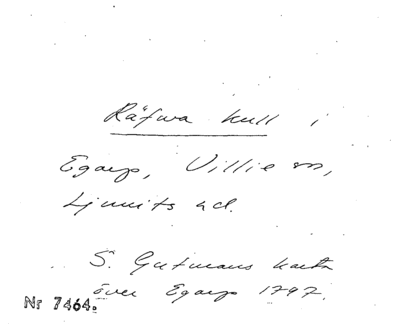 Räfwa kull i
Egarp, Villie sn,
Ljunits hd.
S. Gutmans karta
över Egarp 1797.
Nr 7464.